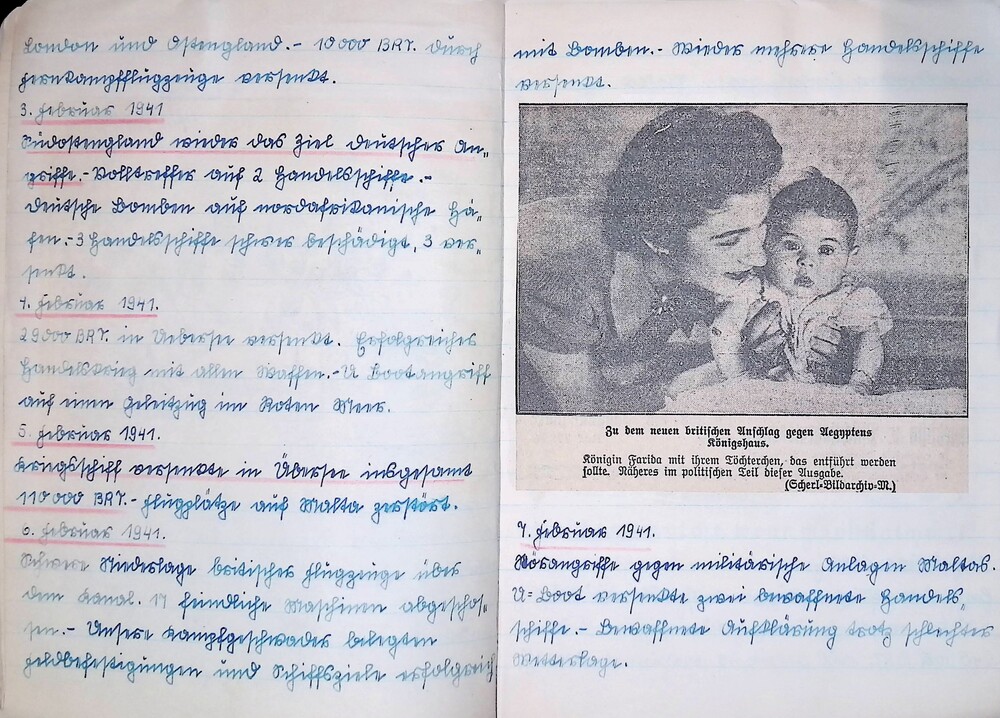 London und Ostengland.- 10000 BRT. durch
Fernkampfflugzeuge versenkt.
3. Februar 1941
Südostengland wieder das Ziel deutscher An-
griffe.- Volltreffer auf 2 Handelsschiffe.-
Deutsche Bomben auf nordafrikanische Hä-
fen.: 3 Handelsschiffe schwer beschädigt, 3 ver-
senkt.
4. Februar 1941.
29000 BRT. in Uebersee versenkt. Erfolgreiches
Handelskrieg mit allen Waffen.- U Bootangriff
auf einen Geleitzug im Roten Meer.
5. Februar 1941.
Kriegsschiff versenkte in Übersee insgesamt
110 000 BRT.- Flugplätze auf Malta zerstört.
6. Februar 1941.
Schwere Niederlage britischer Flugzeuge über
dem Kanal. 17 feindliche Maschinen abgeschos-
sen.- Unsere Kampfgeschwader belegten
Feldbefestigungen und Schiffsziele erfolgreich
mit Bomben.- Wieder mehrere Handelsschiffe
versenkt.
Zu dem neuen britischen Anschlag gegen Aegyptens
Königshaus.
Königin Farida mit ihrem Töchterchen, das entführt werden
sollte. Näheres im politischen Teil dieser Ausgabe.
(Scherl-Bildarchiv-M.)
7. Februar 1941.
Störangriffe gegen militärische Anlagen Maltas.
U=Boot versenkte zwei bewaffnete Handels-
schiffe.- Bewaffnete Aufklärung trotz schlechter
Wetterlage.